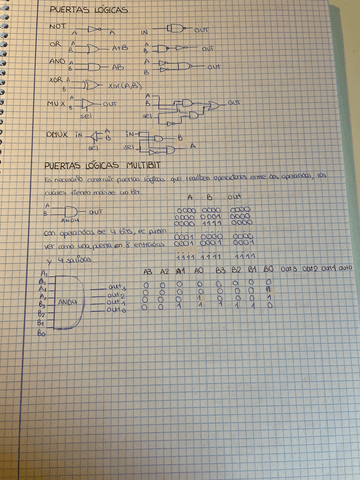 PUERTAS LÓGICAS
NOT A A IN OUT
OR A B A+B A B OUT
AND A B AB A B OUT
XOR A B XOR(A,B)
MUX A B OUT sel A B sel OUT
DMUX IN A B sel IN sel B A
PUERTAS LÓGICAS MULTIBIT
Es necesario construir puertas lógicas que realicen operaciones entre dos operandos, los
cuales tienen más de un bit.
A B OUT
A B AND4 OUT
0000 0000 0000
0000 0001 0000
0000 1111 0000
con operandos de 4 bits, se puede
0001 0000 0000
ver como una puerta con 8 entradas
0001 0001 0001
y 4 salidas
1111 1111 1111
A3 A2 A1 A0 B3 B2 B1 B0 OUT3 OUT2 OUT1 OUT0
0 0 0 0 0 0 0 0
0 0 0 0 0 0 0 1
0 0 0 1 0 0 0 1
0 0 1 1 1 1 1 0
AND4
OUT3
OUT2
OUT1
OUT0